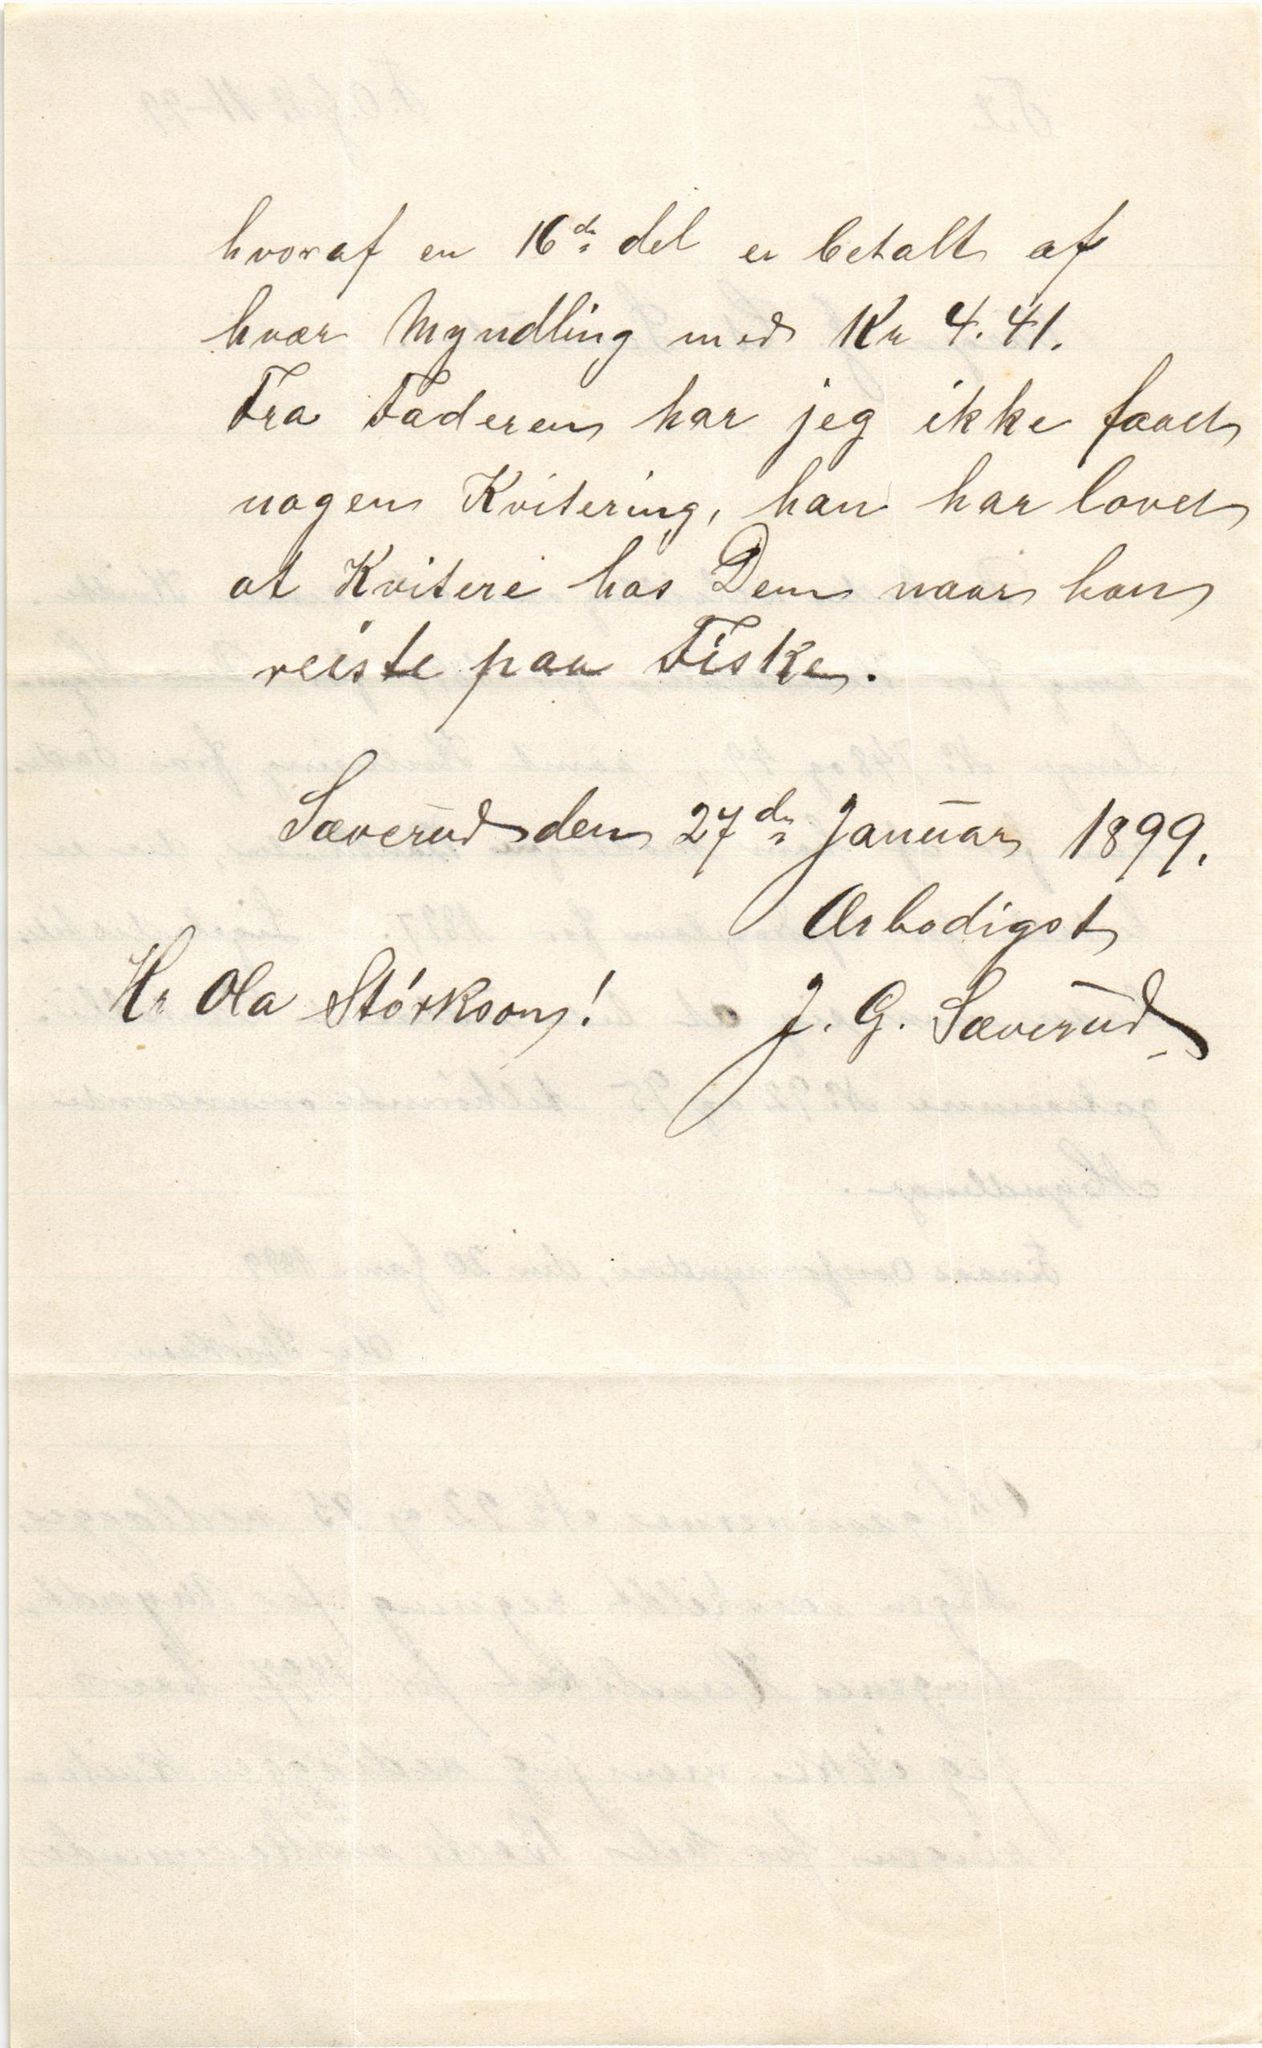 hvoraf en 16de del er betalt af
hver Myndling med Kr 4.41.
Fra Faderen har jeg ikke faaet
nogen Kvitering, han har lovet
at Kvitere hos Dem naar han
reiste paa Fiske.
Sæverud den 27de Januar 1899.
Ærbødigst
Hr Ola Störksons!
J. G. Sæverud